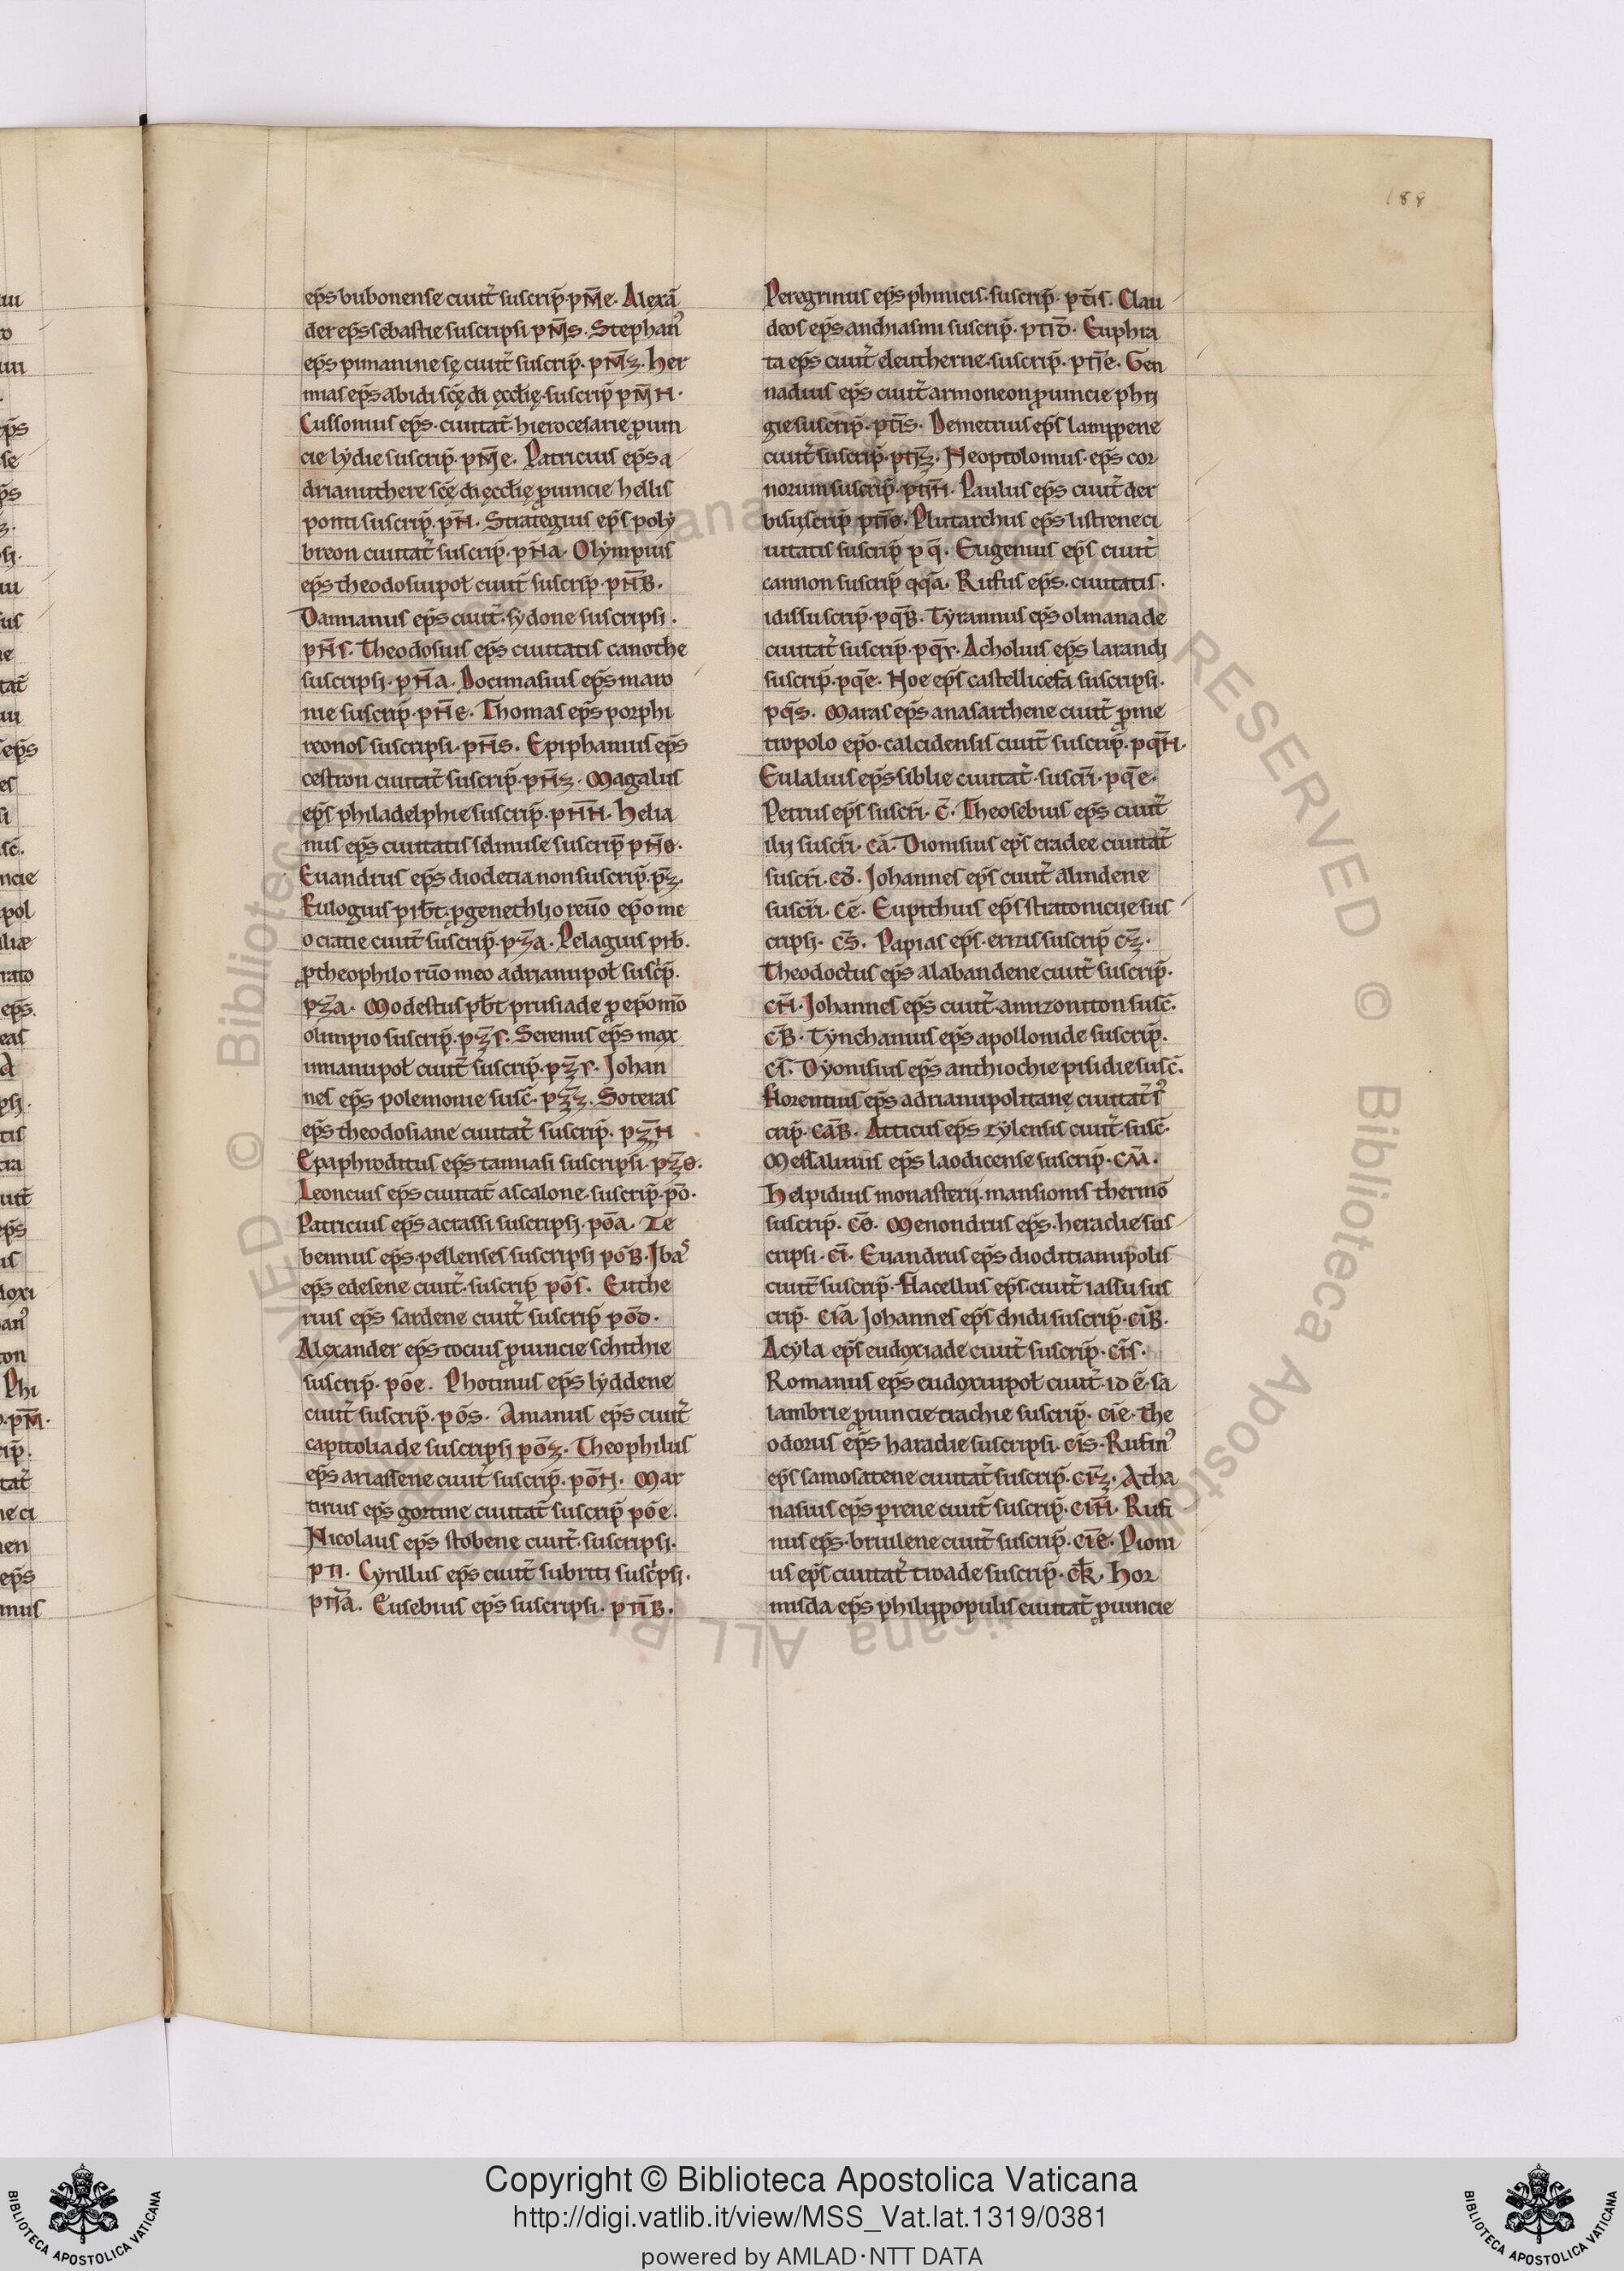 188
ep̄s bubonense ciuit᷑ suscrip̄. pM̄e. Alexā
der ep̄s sebastie suscripsi pM̄s. Stephanꝰ
ep̄s pimanine sę ciuit᷑ suscrip̄. pM̄z. her
mias ep̄s abidi scę̄ dī ęcclię̄. suscrip̄ pM̄H.
Cussonius ep̄s. ciuitat᷑. hierocesarie ꝓuin
cie lydie suscrip̄. pM̄e. Patricius ep̄s a
drianuthere scę̄ dī ęcclię̄ ꝓuincie hellis
ponti suscrip̄. pH̄. Strategius ep̄s poly
breon ciuitat᷑ suscrip̄. pH̄a. Olympius
ep̄s theodosiupoł ciuit᷑ suscrip̄. pH̄B.
Damianus ep̄s ciuit᷑. sydone suscripsi.
pH̄ſ. Theodosius ep̄s ciuitatis canothe
suscripsi. pH̄a. Docimasius ep̄s maro
nie suscrip̄. pH̄e. Thomas ep̄s porphi
reonos suscripsi. pH̄s. Epiphanius ep̄s
cestron ciuitat᷑ suscrip̄. pH̄z. Magalus
ep̄s philadelphie suscrip̄. pH̄H. helia
nus ep̄s ciuitatis selinuse suscrip̄ pH̄o.
Euandrus ep̄s diodecianon suscrip̄. p̄z.
Eulogius prb̄t. ꝓ genethlio reūo ep̄o me
o ciatie ciuit᷑ suscrip̄. pz̄a. Pelagius prb̄.
ꝓ theophilo rūo meo adrianupoł suscp̄.
pz̄a. Modestus pb̄t prusiade ꝓ ep̄o mō
olimpio suscrip̄. pz̄ſ. Serenus ep̄s max
imianupoł ciuit᷑ suscrip̄. pz̄ſ. Johan
nes ep̄s polemonie susc̄. pz̄z. Soteras
ep̄s theodosiane ciuitat᷑ suscrip̄. pz̄H
Epaphroditus ep̄s tamiasi suscripsi. pz̄o.
Leoncius ep̄s ciuitat᷑ ascalone. suscrip̄. pō.
Patricius ep̄s acrassi suscripsi. pōa. Ze
bennus ep̄s. pellenses suscripsi pōB. Jbaˢ
ep̄s edesene ciuit᷑. suscrip̄ pōſ. Euthe
rius ep̄s sardene ciuit᷑ suscrip̄ pōd.
Alexander ep̄s tocius ꝓuincie schithie
suscrip̄. pōe. Photinus ep̄s lyddene
ciuit᷑ suscrip̄. pōs. Amanus ep̄s ciuit᷑
capitoliade suscripsi pōz. Theophilus
ep̄s ariassene ciuit᷑ suscrip̄. pōH. Mar
tirius ep̄s gortine ciuitat᷑ suscrip̄ pōe.
Nicolaus ep̄s stobene ciuit᷑. suscripsi.
pπ. Cyrillus ep̄s ciuit᷑ subriti suscp̄si.
pπ̄a. Eusebius ep̄s suscripsi. pπ̄B.
Peregrinus ep̄s phinicis. suscrip̄. pπ̄ſ. Clau
deos ep̄s anchiasmi suscrip̄. pπ̄d. Euphra
ta ep̄s ciuit᷑ eleutherne. suscrip̄. pπ̄e. Gen
nadius ep̄s ciuit᷑ armoneon ꝓuincie phri
gie suscrip̄. pπ̄s. Demetrius ep̄s lampene
ciuit᷑ suscrip̄. pπ̄z. Neoptolomus. ep̄s cor
norum suscrip̄. pπ̄H. Paulus ep̄s ciuit᷑ der
bi suscrip̄ pπ̄o. Plutarchus ep̄s listrene ci
uitatis suscrip̄ p q̄. Eugenius ep̄s ciuit᷑
cannon suscrip̄ qq̄a. Rufus ep̄s. ciuitatis.
idis suscrip̄. pq̄B. Tyrannus ep̄s olmanade
ciuitat᷑ suscrip̄. pq̄ſ. Acholius ep̄s larandi
suscrip̄. pq̄e. Noe ep̄s castelli cefa suscripsi.
pq̄s. Maras ep̄s anasarthene ciuit᷑ ꝓ me
tropolo ep̄o. calcidensis ciuit᷑ suscrip̄. pq̄H.
Eulalius ep̄s siblie ciuitat᷑. suscr̄i. pq̄e.
Petrus ep̄s suscr̄i. c̄. Theosebius ep̄s ciuit᷑
ilij suscr̄i. cā. Dionisius ep̄s eradee ciuitat᷑
suscr̄i. cd̄. Johannes ep̄s ciuit᷑ alindene
suscr̄i. cē. Eupithius ep̄s stratonicije sus
cripsi. cs̄. Papias ep̄s. erizis suscrip̄ cz̄.
Theodoctus ep̄s alabandene ciuit᷑ suscrip̄.
cH̄. Johannes ep̄s ciuit᷑. amizontton susc̄.
cB̄. Tynchanius ep̄s apollonide suscrip̄.
cī. Dyonisius ep̄s anthiochie pisidie susc̄.
florentius ep̄s adrianupolitanę ciuitat᷑ sꝰ
crip̄. cāB. Atticus ep̄s zylensis ciuit᷑. susc̄.
Messalinus ep̄s laodicense suscrip̄. cāa.
helpidius monasterij. mansionis thermō
suscrip̄. cō. Menondrus ep̄s. heraclie sus
cripsi. cī. Euandrus ep̄s diocletianupolis
ciuit᷑ suscrip̄. flacellus ep̄s. ciuit᷑ iassu sus
crip̄. cīa. Johannes ep̄s chidi suscrip̄. cīB.
Acyla ep̄s eudoxiade ciuit᷑ suscrip̄. cīſ.
Romanus ep̄s eudoxiupoł ciuit᷑. id ē. sa
lambrie ꝓuincie trachie suscrip̄. cīe. The
odorus ep̄s haradie suscripsi. cīs. Rufinꝰ
ep̄s samosatene ciuitat᷑ suscrip̄. cīz. Atha
nasius ep̄s prene ciuit᷑ suscrip̄. cīH. Rufi
nus ep̄s. briulene ciuit᷑ suscrip̄. cīe. Pioni
us ep̄s ciuitat᷑ troade suscrip̄. ck̄. Hor
misda ep̄s philippopulis ciuitat᷑ ꝓuincie
Copyright © Biblioteca Apostolica Vaticana
http://digi.vatlib.it/view/MSS_Vat.lat.1319/0381
powered by AMLAD·NTT DATA
BIBLIOTECA APOSTOLICA VATICANA
BIBLIOTECA APOSTOLICA VATICANA